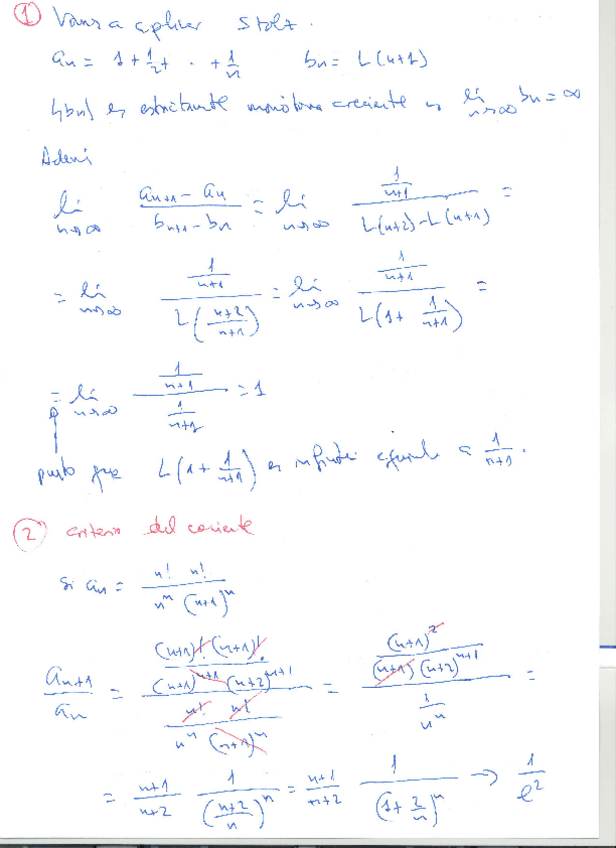 ① Vamos a aplicar Stolz.
aₙ = 1 + 1/2 + · · + 1/n    bₙ = L(n+1)
{bₙ} es estrictamente monótona creciente y lim_{n→∞} bₙ = ∞
Además
lim_{n→∞} (aₙ₊₁ - aₙ)/(bₙ₊₁ - bₙ) = lim_{n→∞} (1/(n+1))/(L(n+2) - L(n+1)) =
= lim_{n→∞} (1/(n+1))/(L((n+2)/(n+1))) = lim_{n→∞} (1/(n+1))/(L(1 + 1/(n+1))) =
= lim_{n→∞} (1/(n+1))/(1/(n+1)) = 1
puesto que L(1 + 1/(n+1)) es a 1/(n+1).
② criterio del cociente
Si aₙ = (n! n!)/(nⁿ (n+1)ⁿ)
aₙ₊₁/aₙ = (((n+1)! (n+1)!)/((n+1)ⁿ⁺¹ (n+2)ⁿ⁺¹))/((n! n!)/(nⁿ (n+1)ⁿ)) = ((n+1)²/((n+1) (n+2)ⁿ⁺¹))/(1/nⁿ) =
= (n+1)/(n+2) 1/((n+2)/n)ⁿ = (n+1)/(n+2) 1/(1 + 2/n)ⁿ → 1/e²